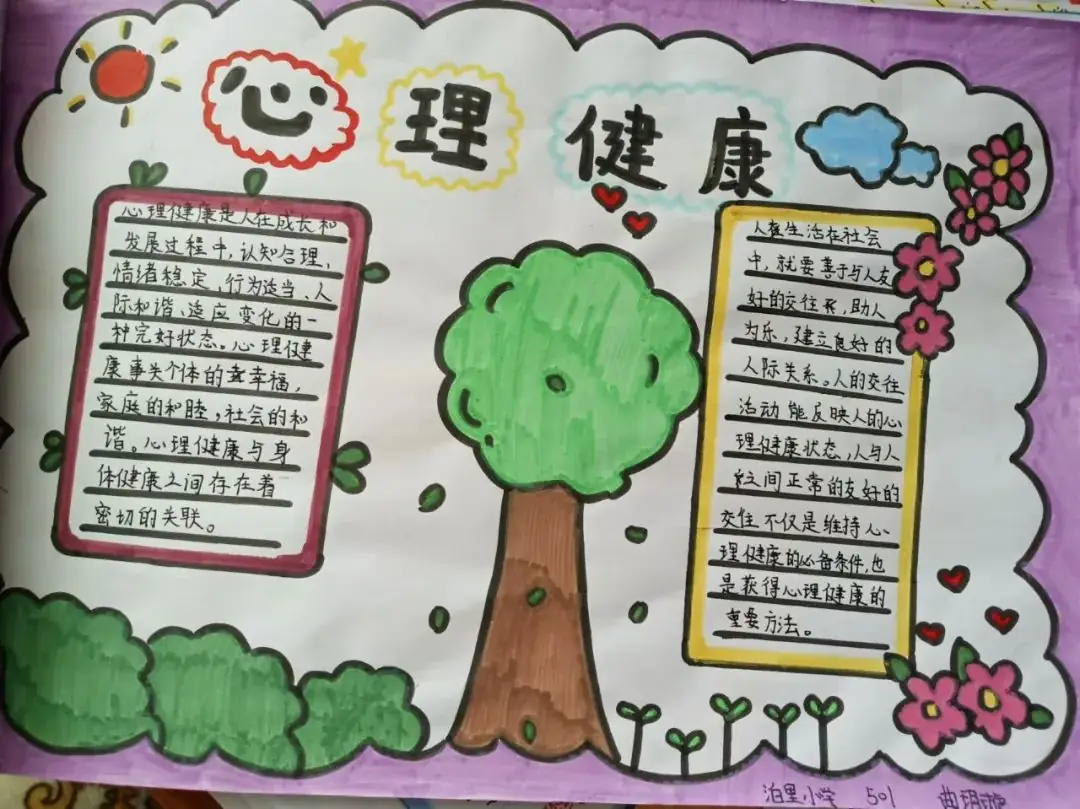 心理健康
心理健康是人在成长和
发展过程中，认知合理、
情绪稳定，行为适当、人
际和谐、适应变化的一
种完好状态。心理健
康事关个体的幸福，
家庭的和睦，社会的和
谐。心理健康与身
体健康之间存在着
密切的关联。
人在生活在社会
中，就要善于与人友
好的交往，助人
为乐，建立良好的
人际关系。人的交往
活动能反映人的心
理健康状态，人与人
之间正常的友好的
交往不仅是维持心
理健康的必备条件，也
是获得心理健康的
重要方法。
泊里小学 501